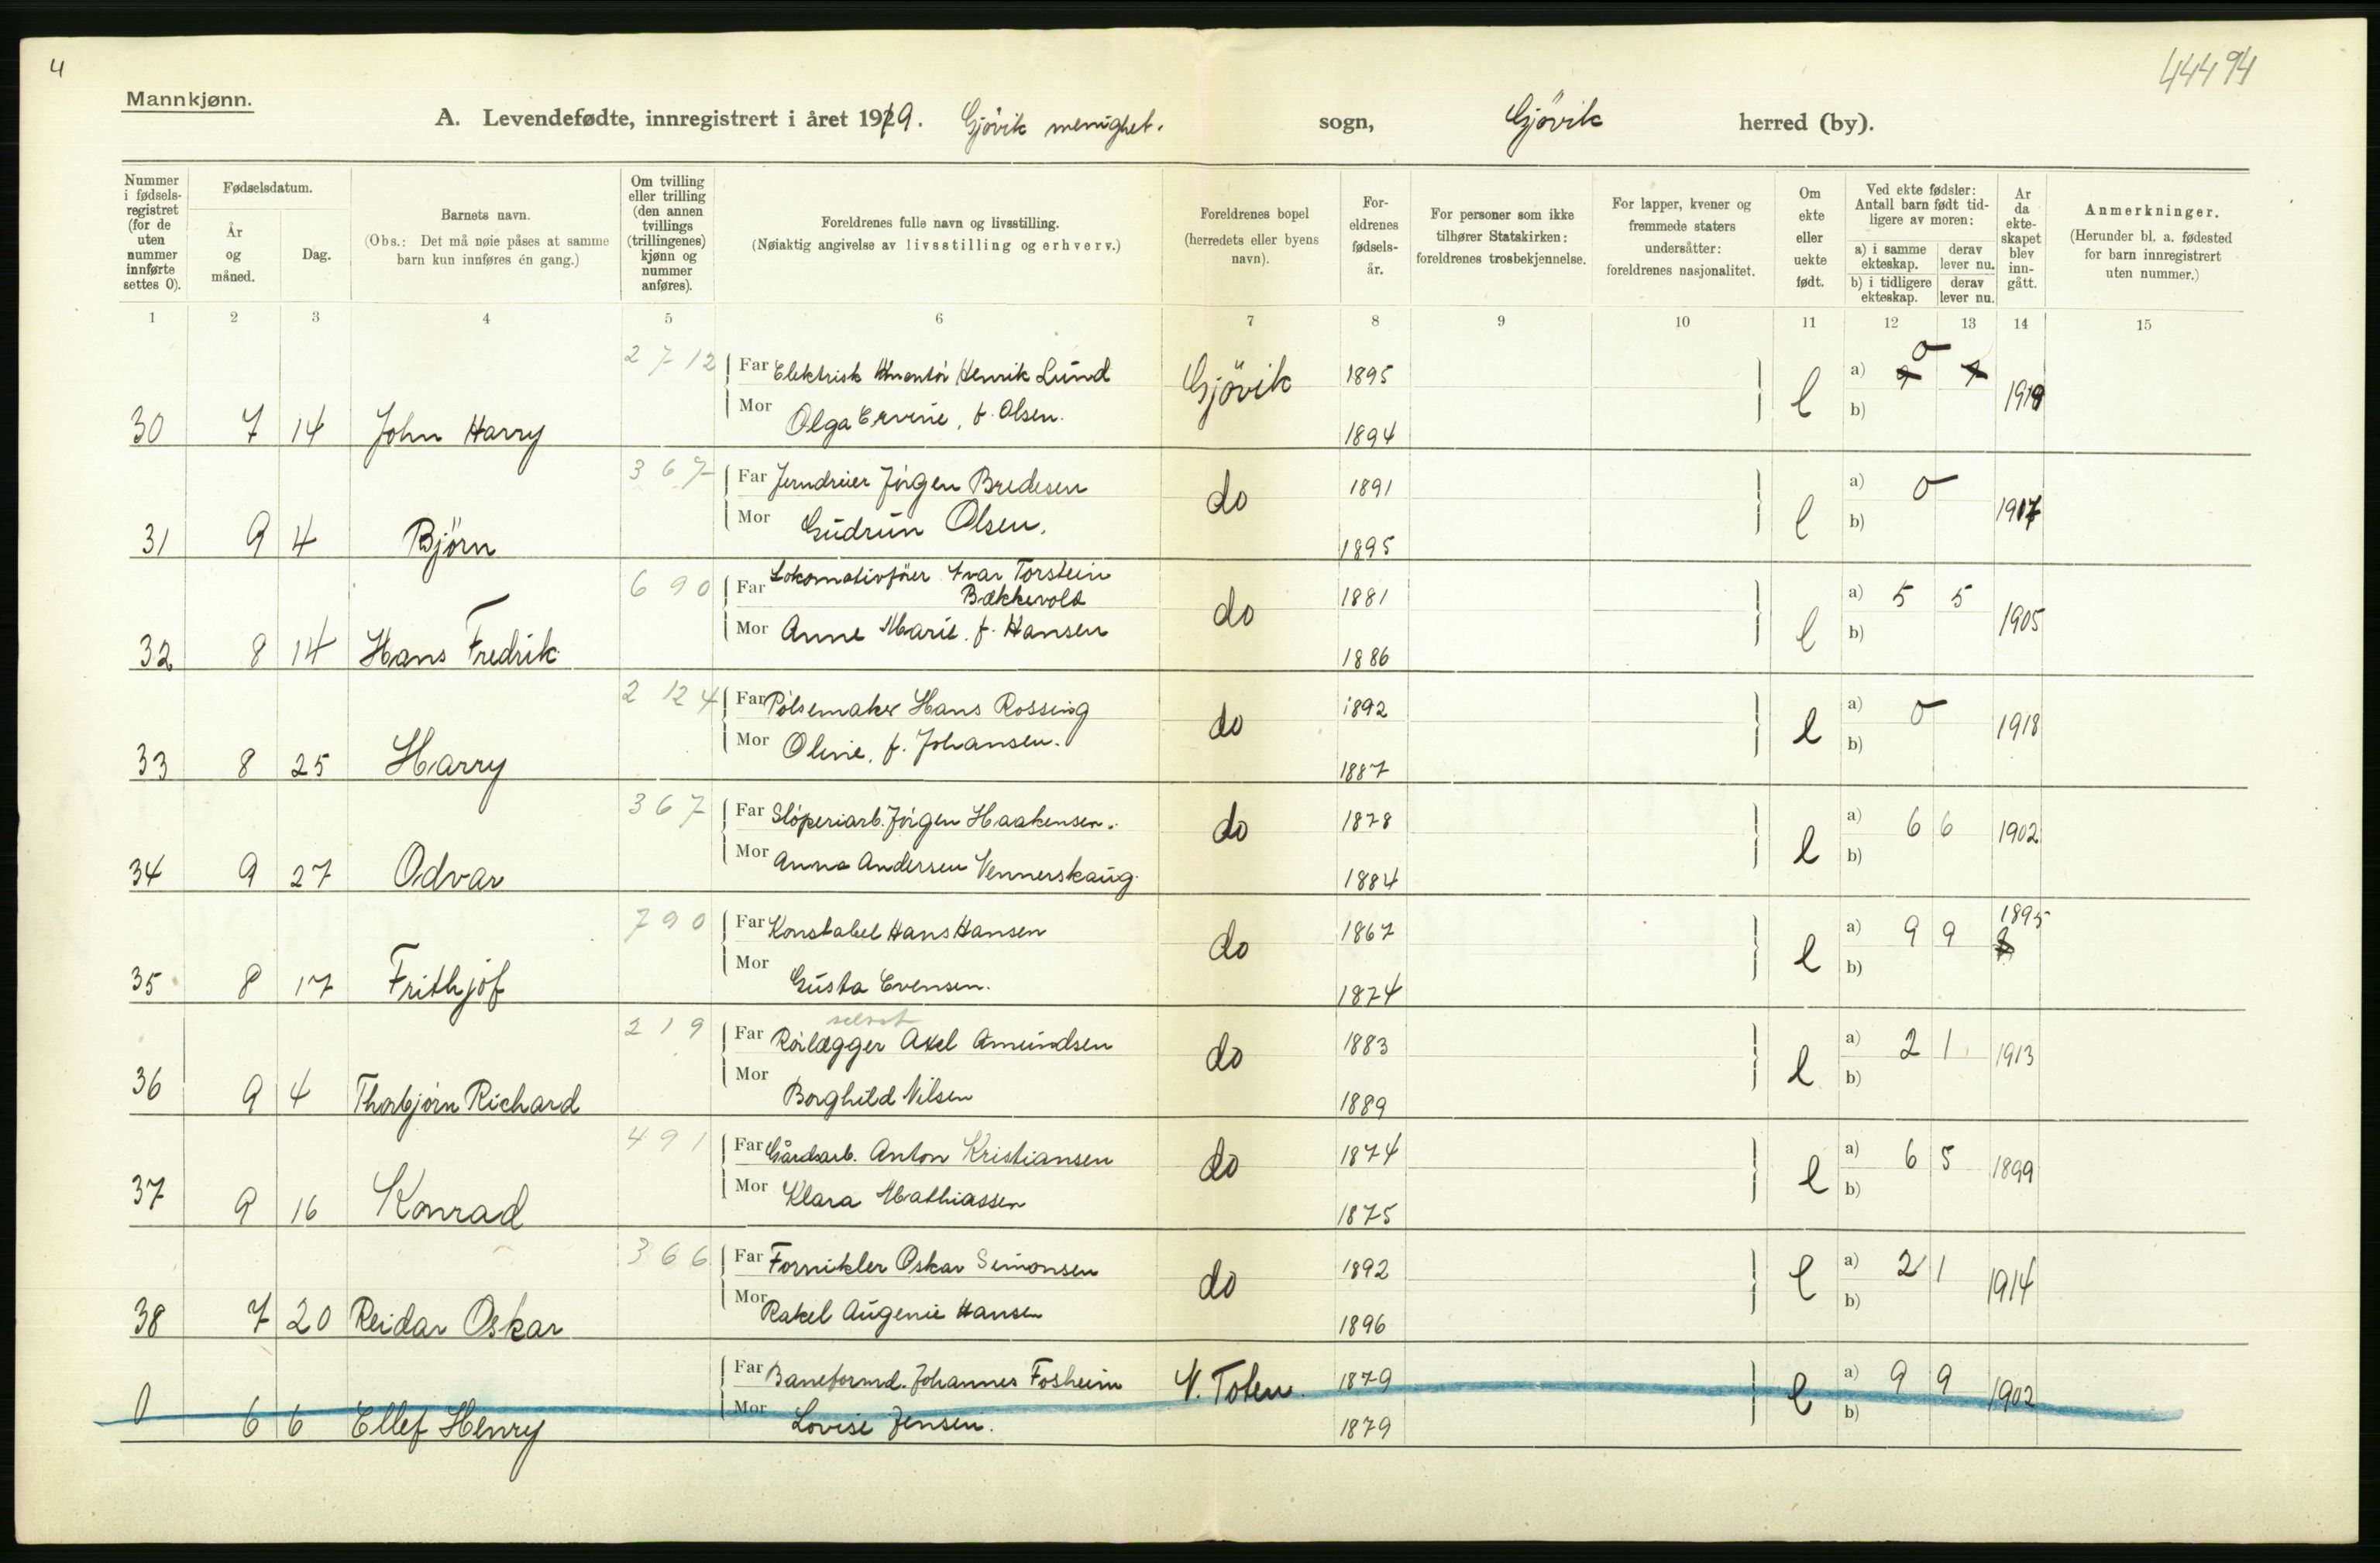 4
44494
Mannkjønn.
A. Levendefødte, innregistrert i året 1919. Gjövik menighet. sogn, Gjövik herred (by).
Nummer i fødselsregistret (for de uten nummer innførte settes 0).
Fødselsdatum.
År og måned.
Dag.
Barnets navn.
(Obs.: Det må nøie påses at samme barn kun innføres én gang.)
Om tvilling eller trilling (den annen tvillings (trillingenes) kjønn og nummer anføres).
Foreldrenes fulle navn og livsstilling.
(Nøiaktig angivelse av livsstilling og erhverv.)
Foreldrenes bopel (herredets eller byens navn).
Foreldrenes fødselsår.
For personer som ikke tilhører Statskirken: foreldrenes trosbekjennelse.
For lapper, kvener og fremmede staters undersåtter: foreldrenes nasjonalitet.
Om ekte eller uekte født.
Ved ekte fødsler: Antall barn født tidligere av moren:
a) i samme ekteskap. derav lever nu.
b) i tidligere ekteskap. derav lever nu.
Ar da ekteskapet blev inngått.
Anmerkninger.
(Herunder bl. a. fødested for barn innregistrert uten nummer.)
1 2 3 4 5 6 7 8 9 10 11 12 13 14 15
2 7 12 Far Elektrisk Henrik Lund Gjövik 1895 a) 0
30 7 14 John Harry Mor Olga Ervine, f. Olsen. 1894 e b) 1918
3 6 7 Far Jerndreier Jörgen Bredesen do 1891 a) 0
31 9 4 Björn Mor Gudrun Olsen. 1895 e b) 1917
6 9 0 Far Lokomotivföer Ivar Torstein Bækkevold do 1881 a) 5 5
32 8 14 Hans Fredrik Mor Anne Marie. f. Hansen 1886 e b) 1905
2 12 4 Far Pölsemaker Hans Rossing do 1892 a) 0
33 8 25 Harry Mor Oline, f. Johansen. 1887 e b) 1918
3 6 7 Far Slöperiarb. Jörgen Haakensen. do 1878 a) 6 6
34 9 27 Odvar Mor Anna Andersen Vennerskaug. 1884 e b) 1902
7 9 0 Far Konstabel Hans Hansen do 1867 a) 9 9 1895
35 8 17 Frithjof Mor Gusta Evensen. 1874 e b)
selvst
2 1 9 Far Rörlægger Axel Amundsen do 1883 a) 2 1
36 9 4 Thorbjörn Richard Mor Borghild Nilsen 1889 e b) 1913
4 9 1 Far Gårdsarb. Anton Kristiansen do 1874 a) 6 5
37 9 16 Konrad Mor Klara Mathiassen 1875 e b) 1899
3 6 6 Far Fornikler Oskar Simonsen do 1892 a) 2 1
38 7 20 Reidar Oskar Mor Rakel Augenie Hansen 1896 e b) 1914
Far Baneformd. Johannes Fosheim V. Toten. 1879 a) 9 9
0 6 6 Ellef Henry Mor Lovise Jensen. 1879 e b) 1902